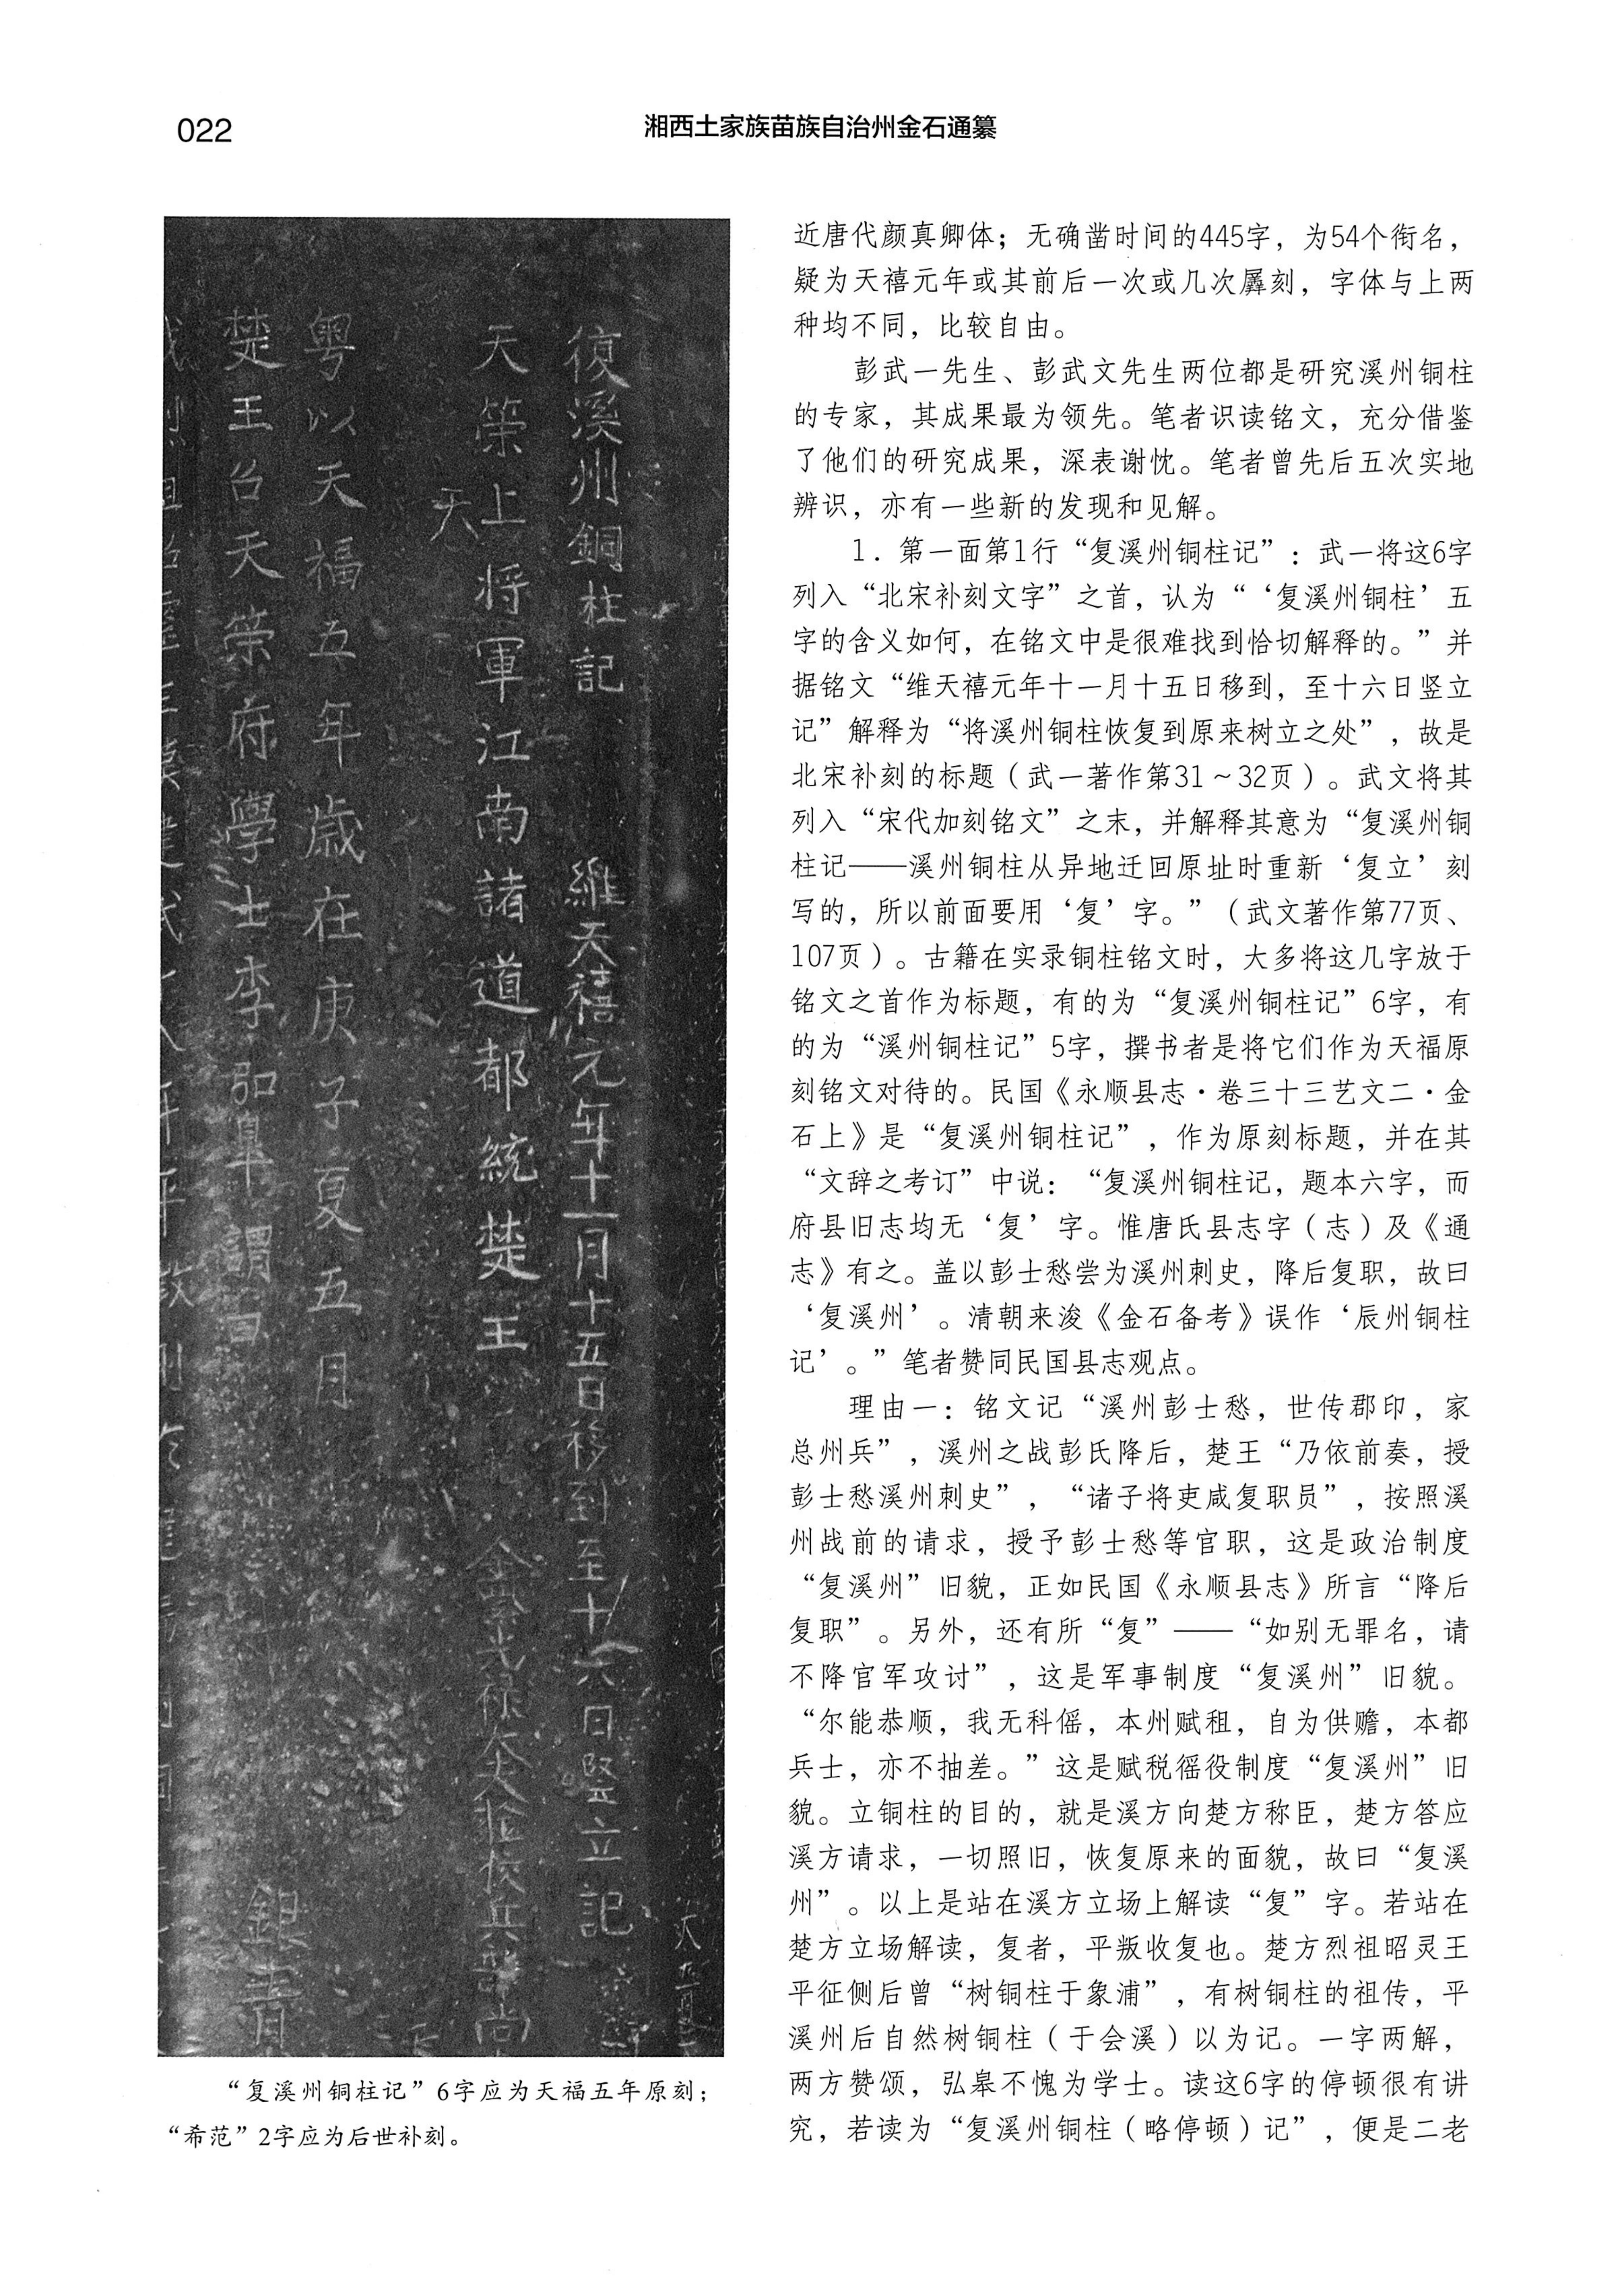 022
湘西土家族苗族自治州金石通纂
復溪州銅柱記
維天禧元年十一月十五日移到至十六日豎立記
天策上將軍江南諸道都統楚王
天
金紫光祿大夫檢校兵部尚
粤以天福五年歲在庚子夏五月
楚王召天策府學士李弘皋謂曰
銀青
“复溪州铜柱记”6字应为天福五年原刻；
“希范”2字应为后世补刻。
近唐代颜真卿体；无确凿时间的445字，为54个衔名，
疑为天禧元年或其前后一次或几次羼刻，字体与上两
种均不同，比较自由。
彭武一先生、彭武文先生两位都是研究溪州铜柱
的专家，其成果最为领先。笔者识读铭文，充分借鉴
了他们的研究成果，深表谢忱。笔者曾先后五次实地
辨识，亦有一些新的发现和见解。
1．第一面第1行“复溪州铜柱记”：武一将这6字
列入“北宋补刻文字”之首，认为“‘复溪州铜柱’五
字的含义如何，在铭文中是很难找到恰切解释的。”并
据铭文“维天禧元年十一月十五日移到，至十六日竖立
记”解释为“将溪州铜柱恢复到原来树立之处”，故是
北宋补刻的标题（武一著作第31～32页）。武文将其
列入“宋代加刻铭文”之末，并解释其意为“复溪州铜
柱记——溪州铜柱从异地迁回原址时重新‘复立’刻
写的，所以前面要用‘复’字。”（武文著作第77页、
107页）。古籍在实录铜柱铭文时，大多将这几字放于
铭文之首作为标题，有的为“复溪州铜柱记”6字，有
的为“溪州铜柱记”5字，撰书者是将它们作为天福原
刻铭文对待的。民国《永顺县志·卷三十三艺文二·金
石上》是“复溪州铜柱记”，作为原刻标题，并在其
“文辞之考订”中说：“复溪州铜柱记，题本六字，而
府县旧志均无‘复’字。惟唐氏县志字（志）及《通
志》有之。盖以彭士愁尝为溪州刺史，降后复职，故曰
‘复溪州’。清朝来浚《金石备考》误作‘辰州铜柱
记’。”笔者赞同民国县志观点。
理由一：铭文记“溪州彭士愁，世传郡印，家
总州兵”，溪州之战彭氏降后，楚王“乃依前奏，授
彭士愁溪州刺史”，“诸子将吏咸复职员”，按照溪
州战前的请求，授予彭士愁等官职，这是政治制度
“复溪州”旧貌，正如民国《永顺县志》所言“降后
复职”。另外，还有所“复”——“如别无罪名，请
不降官军攻讨”，这是军事制度“复溪州”旧貌。
“尔能恭顺，我无科徭，本州赋租，自为供赡，本都
兵士，亦不抽差。”这是赋税徭役制度“复溪州”旧
貌。立铜柱的目的，就是溪方向楚方称臣，楚方答应
溪方请求，一切照旧，恢复原来的面貌，故曰“复溪
州”。以上是站在溪方立场上解读“复”字。若站在
楚方立场解读，复者，平叛收复也。楚方烈祖昭灵王
平征侧后曾“树铜柱于象浦”，有树铜柱的祖传，平
溪州后自然树铜柱（于会溪）以为记。一字两解，
两方赞颂，弘皋不愧为学士。读这6字的停顿很有讲
究，若读为“复溪州铜柱（略停顿）记”，便是二老